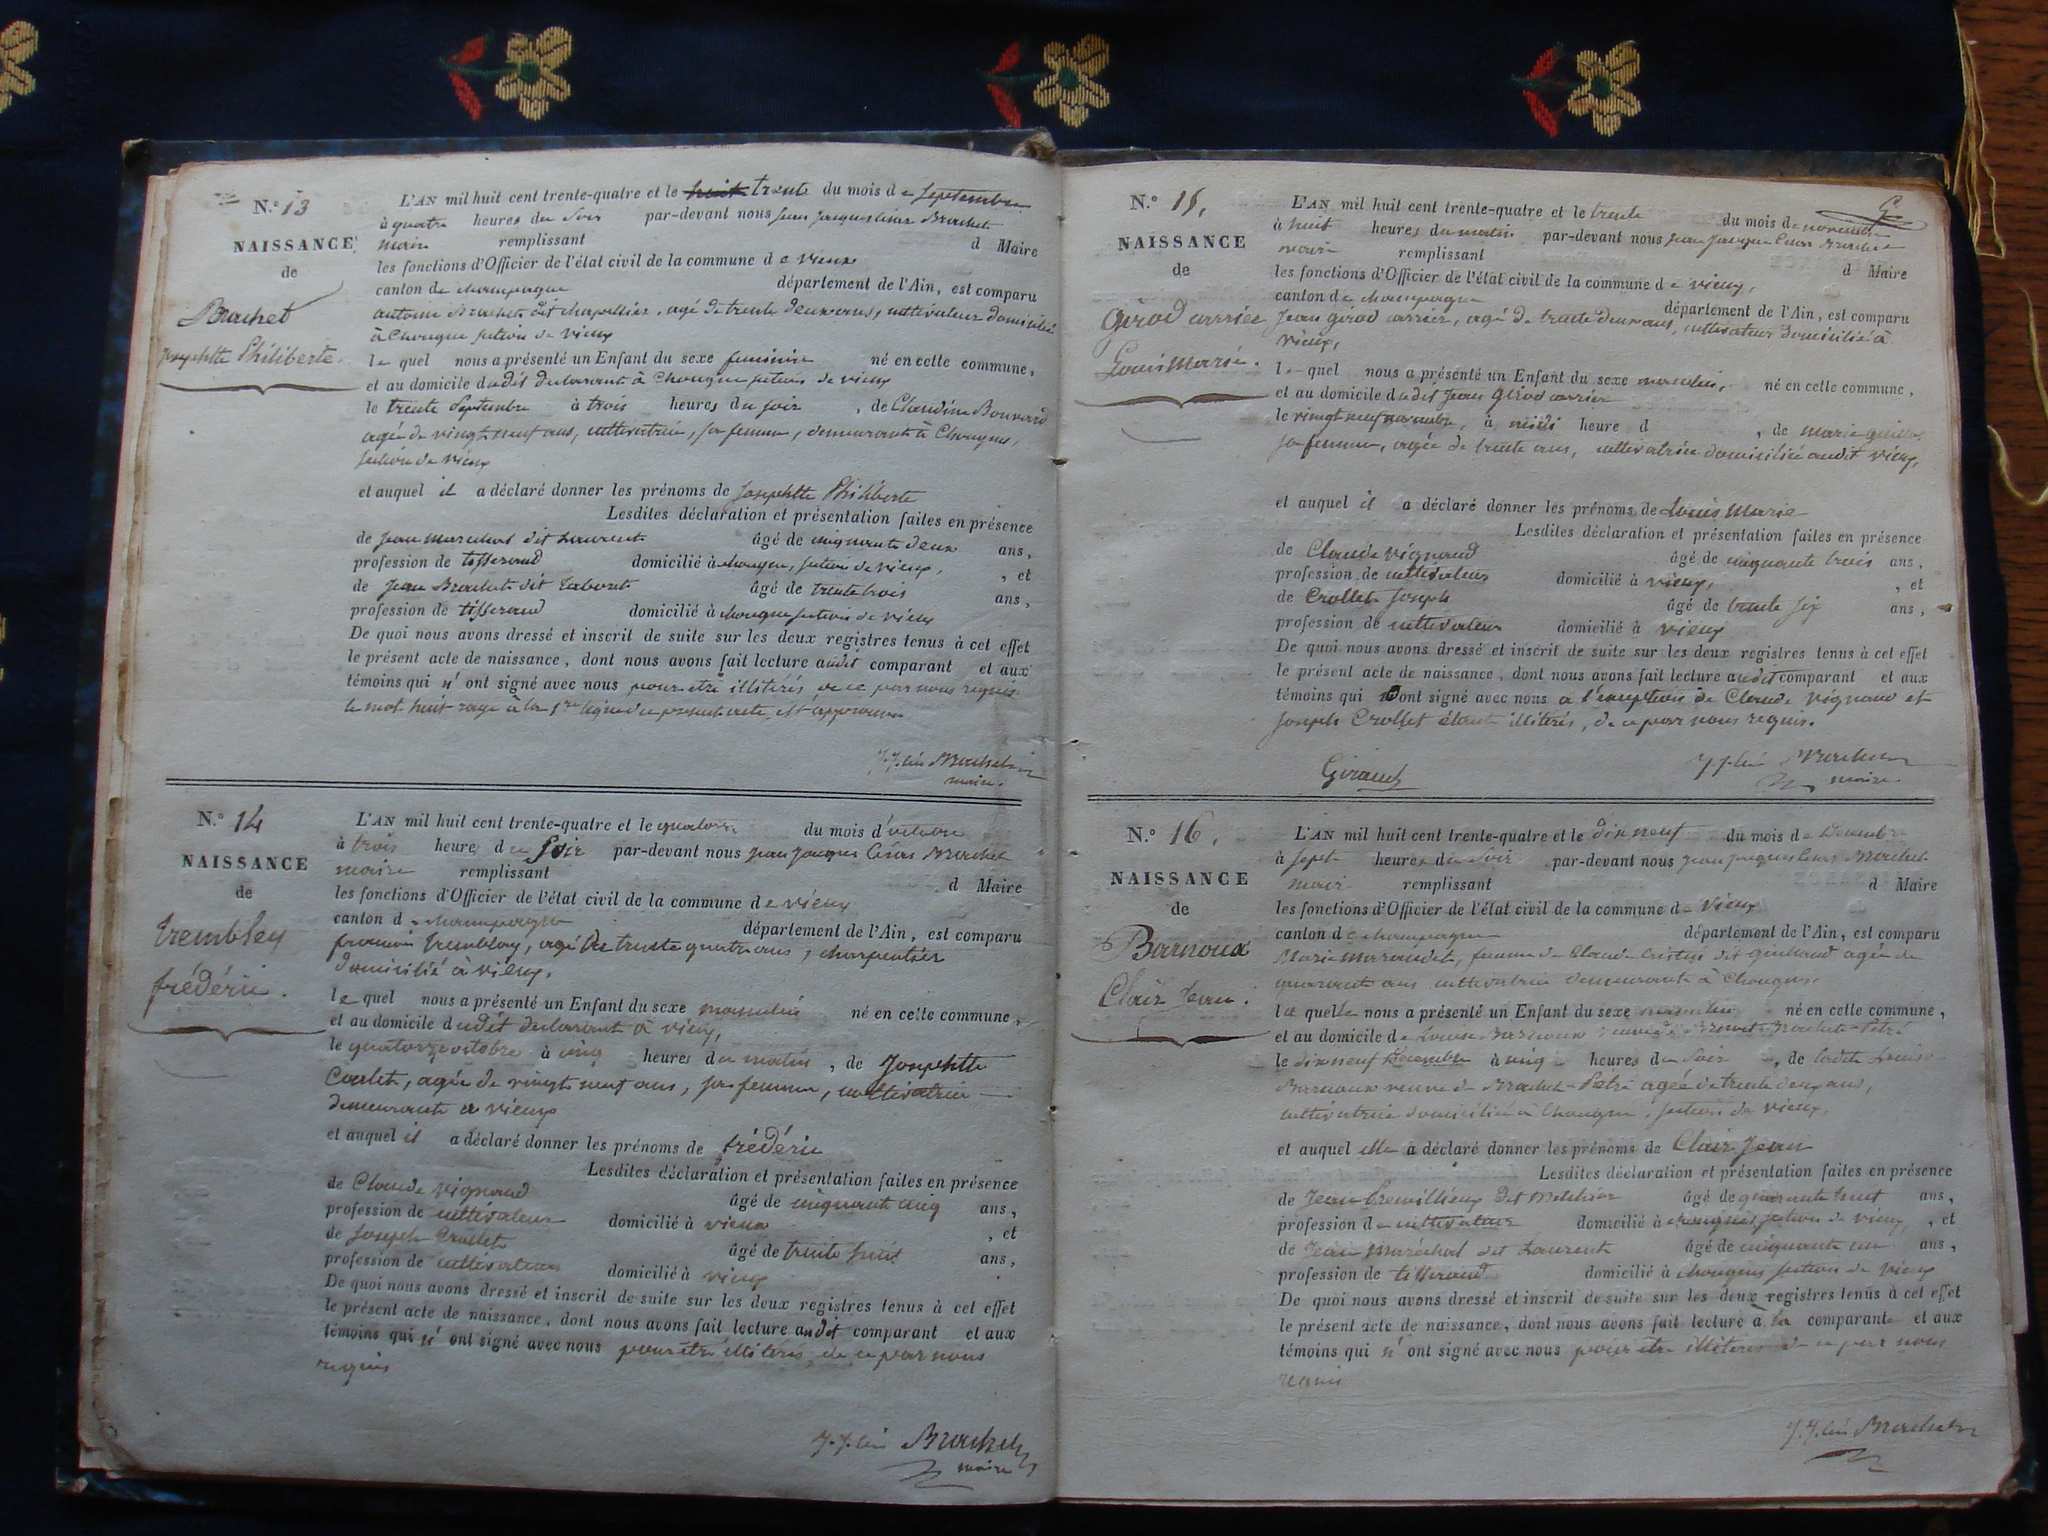 N.° 13
NAISSANCE
de
Brachet
Josephtte Philiberte.
L'AN mil huit cent trente-quatre et le huit trente du mois de Septembre
à quatre heures du Soir par-devant nous Jean Jacques César Brachet
maire remplissant d Maire
les fonctions d'Officier de l'état civil de la commune de vieux
canton de champagne département de l'Ain, est comparu
antoine Brachet dit chapellier, agé de trente deux ans, cultivateur domicilié
à Chongne section de vieux
le quel nous a présenté un Enfant du sexe feminin né en cette commune,
et au domicile dudit declarant à Chongne section de vieux
le trente Septembre à trois heures du soir, de Claudine Bonnard
agée de vingt neuf ans, cultivatrice, sa femme, demeurant à Chongne,
section de vieux
et auquel il a déclaré donner les prénoms de Josephtte Philiberte
Lesdites déclaration et présentation faites en présence
de jean marechal dit Laurent âgé de cinquante deux ans,
profession de tisserand domicilié à chongne, section de vieux, et
de Jean Brachet dit âgé de trente trois ans,
profession de tisserand domicilié à chongne section de vieux
De quoi nous avons dressé et inscrit de suite sur les deux registres tenus à cet effet
le présent acte de naissance, dont nous avons fait lecture audit comparant et aux
témoins qui n'ont signé avec nous pour etre illitérés, de ce par nous requis
le mot huit rayé à la 1re ligne du present acte, est approuvé
J. J. Cés Brachet
maire.
N.° 14
NAISSANCE
de
Trembley
frédéric.
L'AN mil huit cent trente-quatre et le quatorze du mois d'octobre
à trois heures du Soir par-devant nous jean jacques César Brachet
maire remplissant d Maire
les fonctions d'Officier de l'état civil de la commune de vieux
canton de champagne département de l'Ain, est comparu
francois Trembley, agé de trente quatre ans, charpentier
domicilié à vieux,
le quel nous a présenté un Enfant du sexe masculin né en cette commune,
et au domicile dudit declarant à vieux,
le quatorze octobre à cinq heures du matin, de Josephtte
Coulet, agée de vingt neuf ans, sa femme, cultivatrice
demeurante a vieux
et auquel il a déclaré donner les prénoms de frédéric
Lesdites déclaration et présentation faites en présence
de Claude vignaud âgé de cinquante cinq ans,
profession de cultivateur domicilié à vieux, et
de Joseph Crollet âgé de trente huit ans,
profession de cultivateur domicilié à vieux
De quoi nous avons dressé et inscrit de suite sur les deux registres tenus à cet effet
le présent acte de naissance, dont nous avons fait lecture audit comparant et aux
témoins qui n'ont signé avec nous pour être illitérés, de ce par nous
requis
J. J. Cés Brachet
maire
N.° 15,
NAISSANCE
de
Girod carrier
Louis Marie.
L'AN mil huit cent trente-quatre et le trente du mois de novembre
à huit heures du matin par-devant nous jean jacques César Brachet
maire remplissant d Maire
les fonctions d'Officier de l'état civil de la commune de vieux,
canton de champagne département de l'Ain, est comparu
Jean girod carrier, agé de trente deux ans, cultivateur domicilié à
vieux,
le quel nous a présenté un Enfant du sexe masculin, né en cette commune,
et au domicile dudit Jean Girod carrier
le vingt neuf novembre, à midi heure d, de marie
sa femme, agée de trente ans, cultivatrice domiciliée audit vieux,
et auquel il a déclaré donner les prénoms de Louis Marie
Lesdites déclaration et présentation faites en présence
de Claude vignaud âgé de cinquante trois ans,
profession de cultivateur domicilié à vieux, et
de Crollet Joseph âgé de trente six ans,
profession de cultivateur domicilié à vieux
De quoi nous avons dressé et inscrit de suite sur les deux registres tenus à cet effet
le présent acte de naissance, dont nous avons fait lecture audit comparant et aux
témoins qui ont signé avec nous a l'exception de Claude vignaud et
Joseph Crollet étant illitérés, de ce par nous requis.
Giraud
J. J. Cés Brachet
maire
N.° 16,
NAISSANCE
de
Barnoux
Clair Jean.
L'AN mil huit cent trente-quatre et le dix neuf du mois de Décembre
à sept heures du soir par-devant nous jean jacques César Brachet
maire remplissant d Maire
les fonctions d'Officier de l'état civil de la commune de vieux
canton de champagne département de l'Ain, est comparu
Marie femme de Claude dit agée de
quarante ans cultivatrice demeurant à Chongne.
la quelle nous a présenté un Enfant du sexe masculin né en cette commune,
et au domicile de Louise Barnoux veuve de Brachet-Pétré
le dix neuf Décembre à cinq heures du soir, de ladite Louise
Barnoux veuve de Brachet-Petré agée de trente deux ans,
cultivatrice domiciliée à Chongne, section de vieux,
et auquel elle a déclaré donner les prénoms de Clair Jean
Lesdites déclaration et présentation faites en présence
de Jean dit Melchior âgé de quarante huit ans,
profession de cultivateur domicilié à chongne section de vieux, et
de Jean Maréchal dit Laurent âgé de cinquante un ans,
profession de tisserand domicilié à chongne section de vieux
De quoi nous avons dressé et inscrit de suite sur les deux registres tenus à cet effet
le présent acte de naissance, dont nous avons fait lecture à la comparante et aux
témoins qui n'ont signé avec nous pour etre illitérés de ce par nous
requis
J. J. Cés Brachet